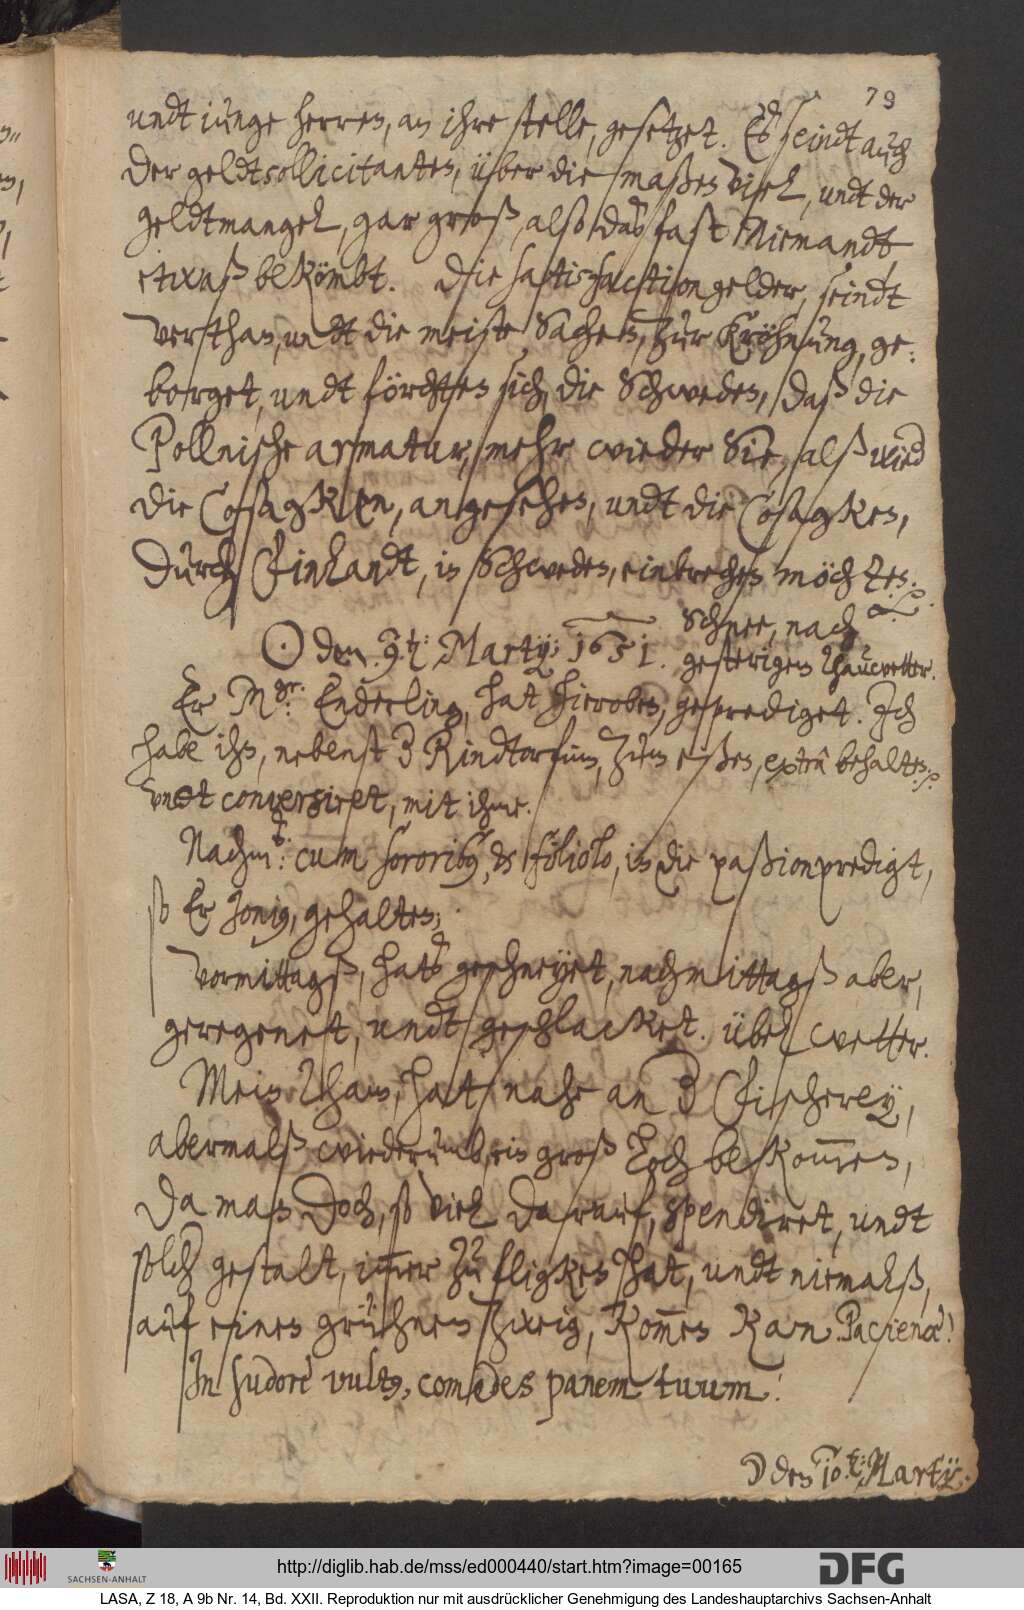 79
undt iunge herren, an ihre stelle, gesetzet. Es seindt auch
der geldtsollicitanten, über die maßen viel, undt der
geldtmangel, gar groß, also das fast Niemandt
etwaß bekömbt. Die satisfactiongelder, seindt
verthan, undt die meiste Sachen, zur Kröhnung, ge-
borget, undt förchten sich, die Schweden, daß die
Pollnische armatur, mehr wieder Sie, alß wied
die Cosagken, angesehen, undt die Cosagken,
durch Finlandt, in Schweden, einbrechen möchten.
Schnee, nach
☉ den 9.t: Martij: 1651. gesterigem Thauwetter.
Er Mgr. Enderling, hat hieroben, geprediget. Ich
habe ihn, nebenst Rindtorfum, zum eßen, extra behalten,
undt conversiret, mit ihme.
Nachm: cum sororibus, et filiolo, in die paßionpredigt,
so Er Jonius, gehalten.
Vormittagß, hats geschneyet, nachmittagß aber,
geregenet, undt geschlacket. übel wetter.
Mein Tham, hat nahe an der Fischerey,
abermalß wiederumb, ein groß Loch bekommen,
da man doch, so viel darauf, spendiret, undt
solcher gestalt, immer zu fligken hat, undt niemalß,
auf einen grühnen zweig, kommen kan. Pacience!
In sudore vultus, comedes panem tuum!
☽ den 10.t: Martij.
http://diglib.hab.de/mss/ed000440/start.htm?image=00165
SACHSEN-ANHALT
DFG
LASA, Z 18, A 9b Nr. 14, Bd. XXII. Reproduktion nur mit ausdrücklicher Genehmigung des Landeshauptarchivs Sachsen-Anhalt